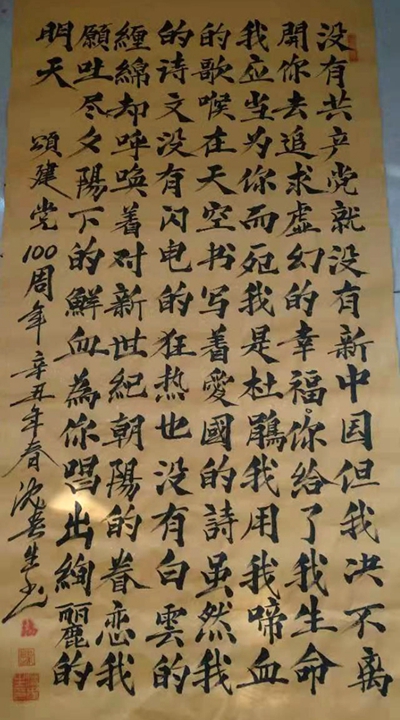 没有共产党就没有新中国但我决不离
開你去追求虚幻的幸福。你给了我生命
我应当为你而死我是杜鵑我用我啼血
的歌喉在天空书写着愛國的詩虽然我
的诗文没有闪电的狂热也没有白雲的
纏綿却呼唤着对新世紀朝陽的眷恋我
願吐尽夕陽下的鮮血為你唱出絢麗的
明天
頌建党100周年辛丑年春沈長生书